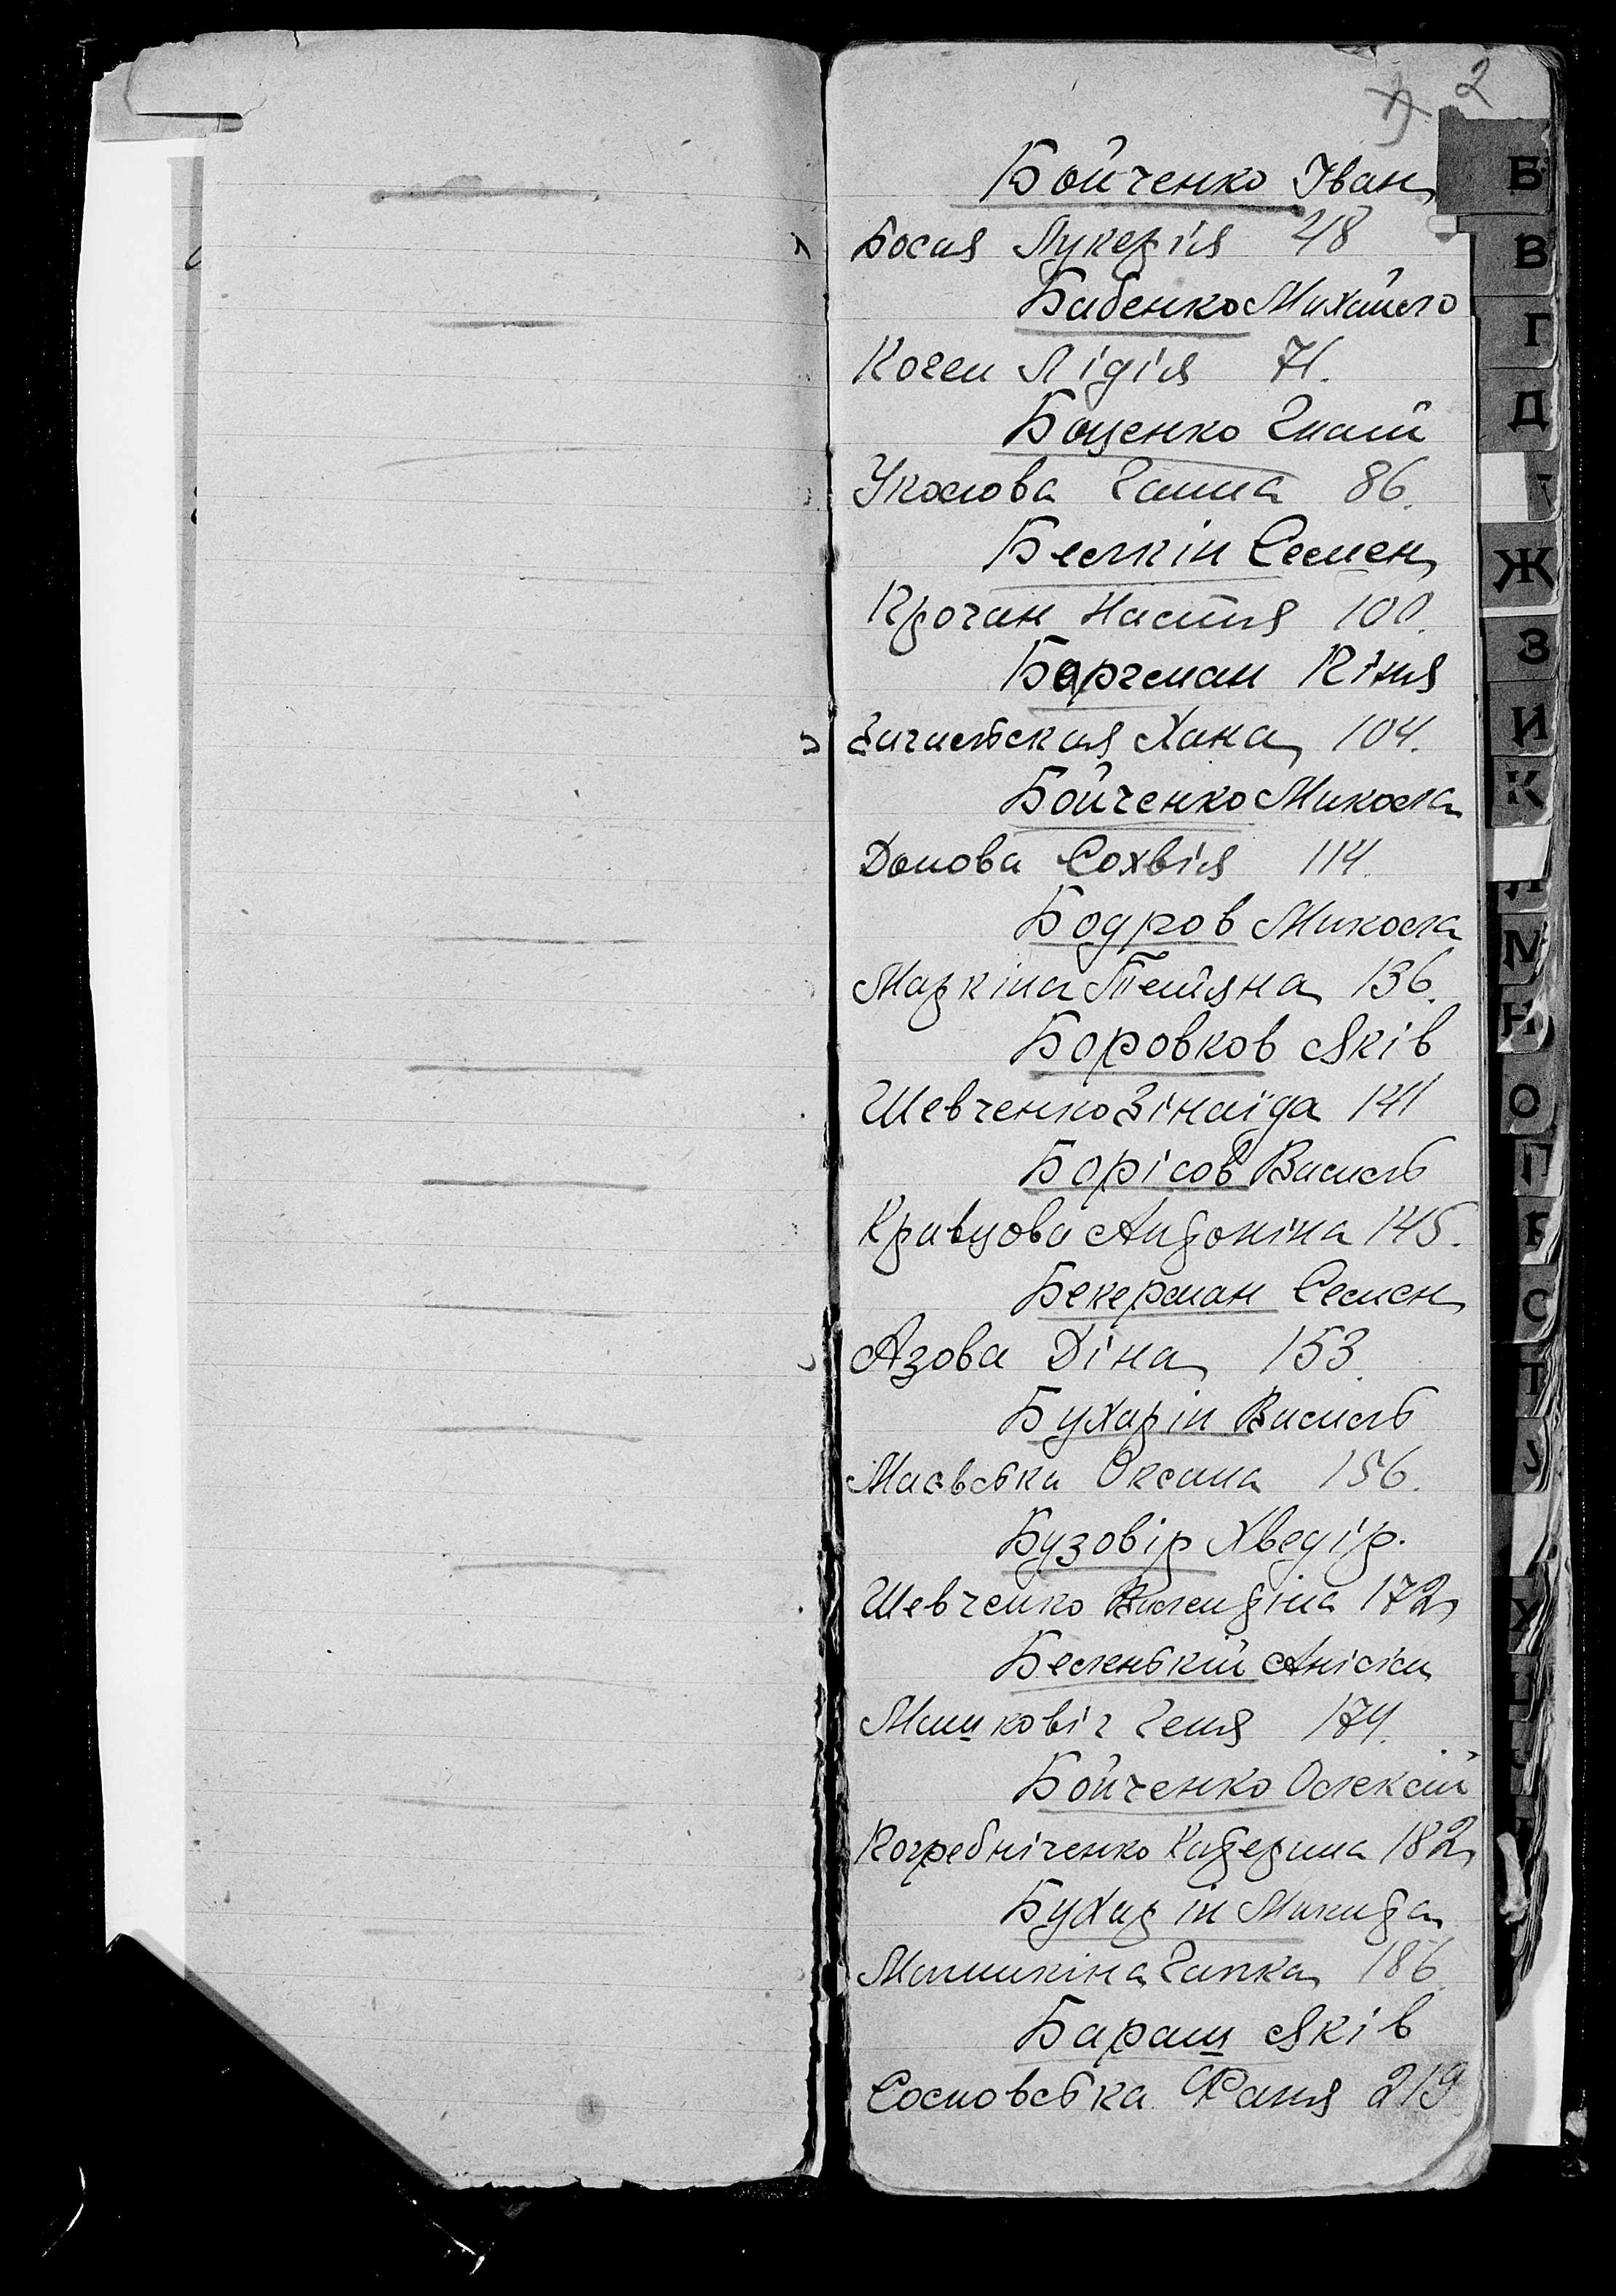 2
Бойченко Іван
Босая Лукерія 48
Бабенко Михайло
Коген Лідія 71.
Боценко Гнат
Уколова Ганна 86.
Белкін Семен
Крочак Настя 100.
Боргеман Кіня
Хана 104.
Бойченко Микола
Домова Сохвія 114.
Бодров Микола
Маркіна Тетяна 136.
Боровков Яків
Шевченко Зінаїда 141
Борісов Василь
Кравцова Антоніна 145.
Бекерман Семен
Азова Діна 153.
Бухарін Василь
Маєвська Оксана 156.
Бузовір Хведір.
Шевченко Валентіна 172
Беленький Анісім
Машковіч Геня 174.
Бойченко Олексій
Когребніченко Катерина 182
Бухарін Микита
Мамикіна Гапка 186.
Бараш Яків
Сосновська Фаня 219
Б
В
Г
Д
Ж
З
И
К
Л
М
Н
О
П
Р
С
Т
У
Х
Ц